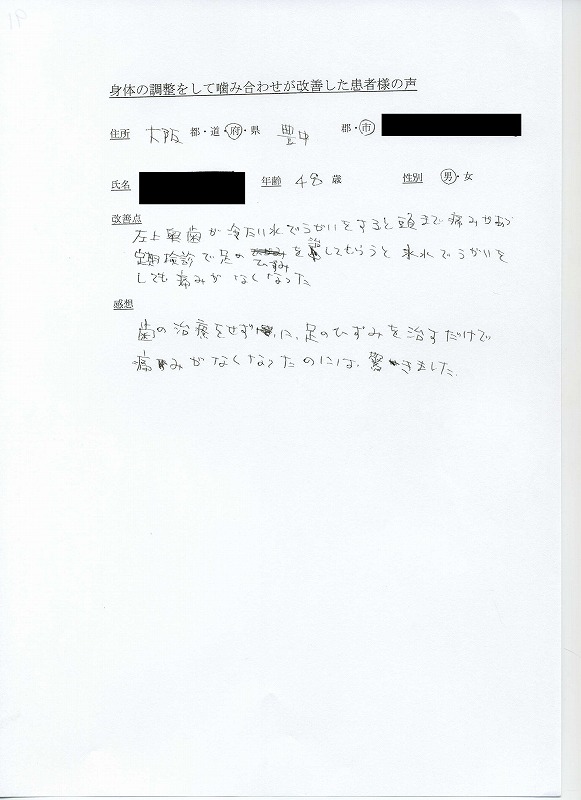 身体の調整をして噛み合わせが改善した患者様の声
住所 大阪 都・道・府・県 豊中 郡・市
氏名 年齢 48 歳 性別 男・女
改善点
左上奥歯が冷たい水でうがいをすると頭まで痛みがあり
定期検診で足のひずみを治してもらうと氷水でうがいを
しても痛みがなくなった
感想
歯の治療をせずに、足のひずみを治すだけで
痛みがなくなったのには、驚きました。